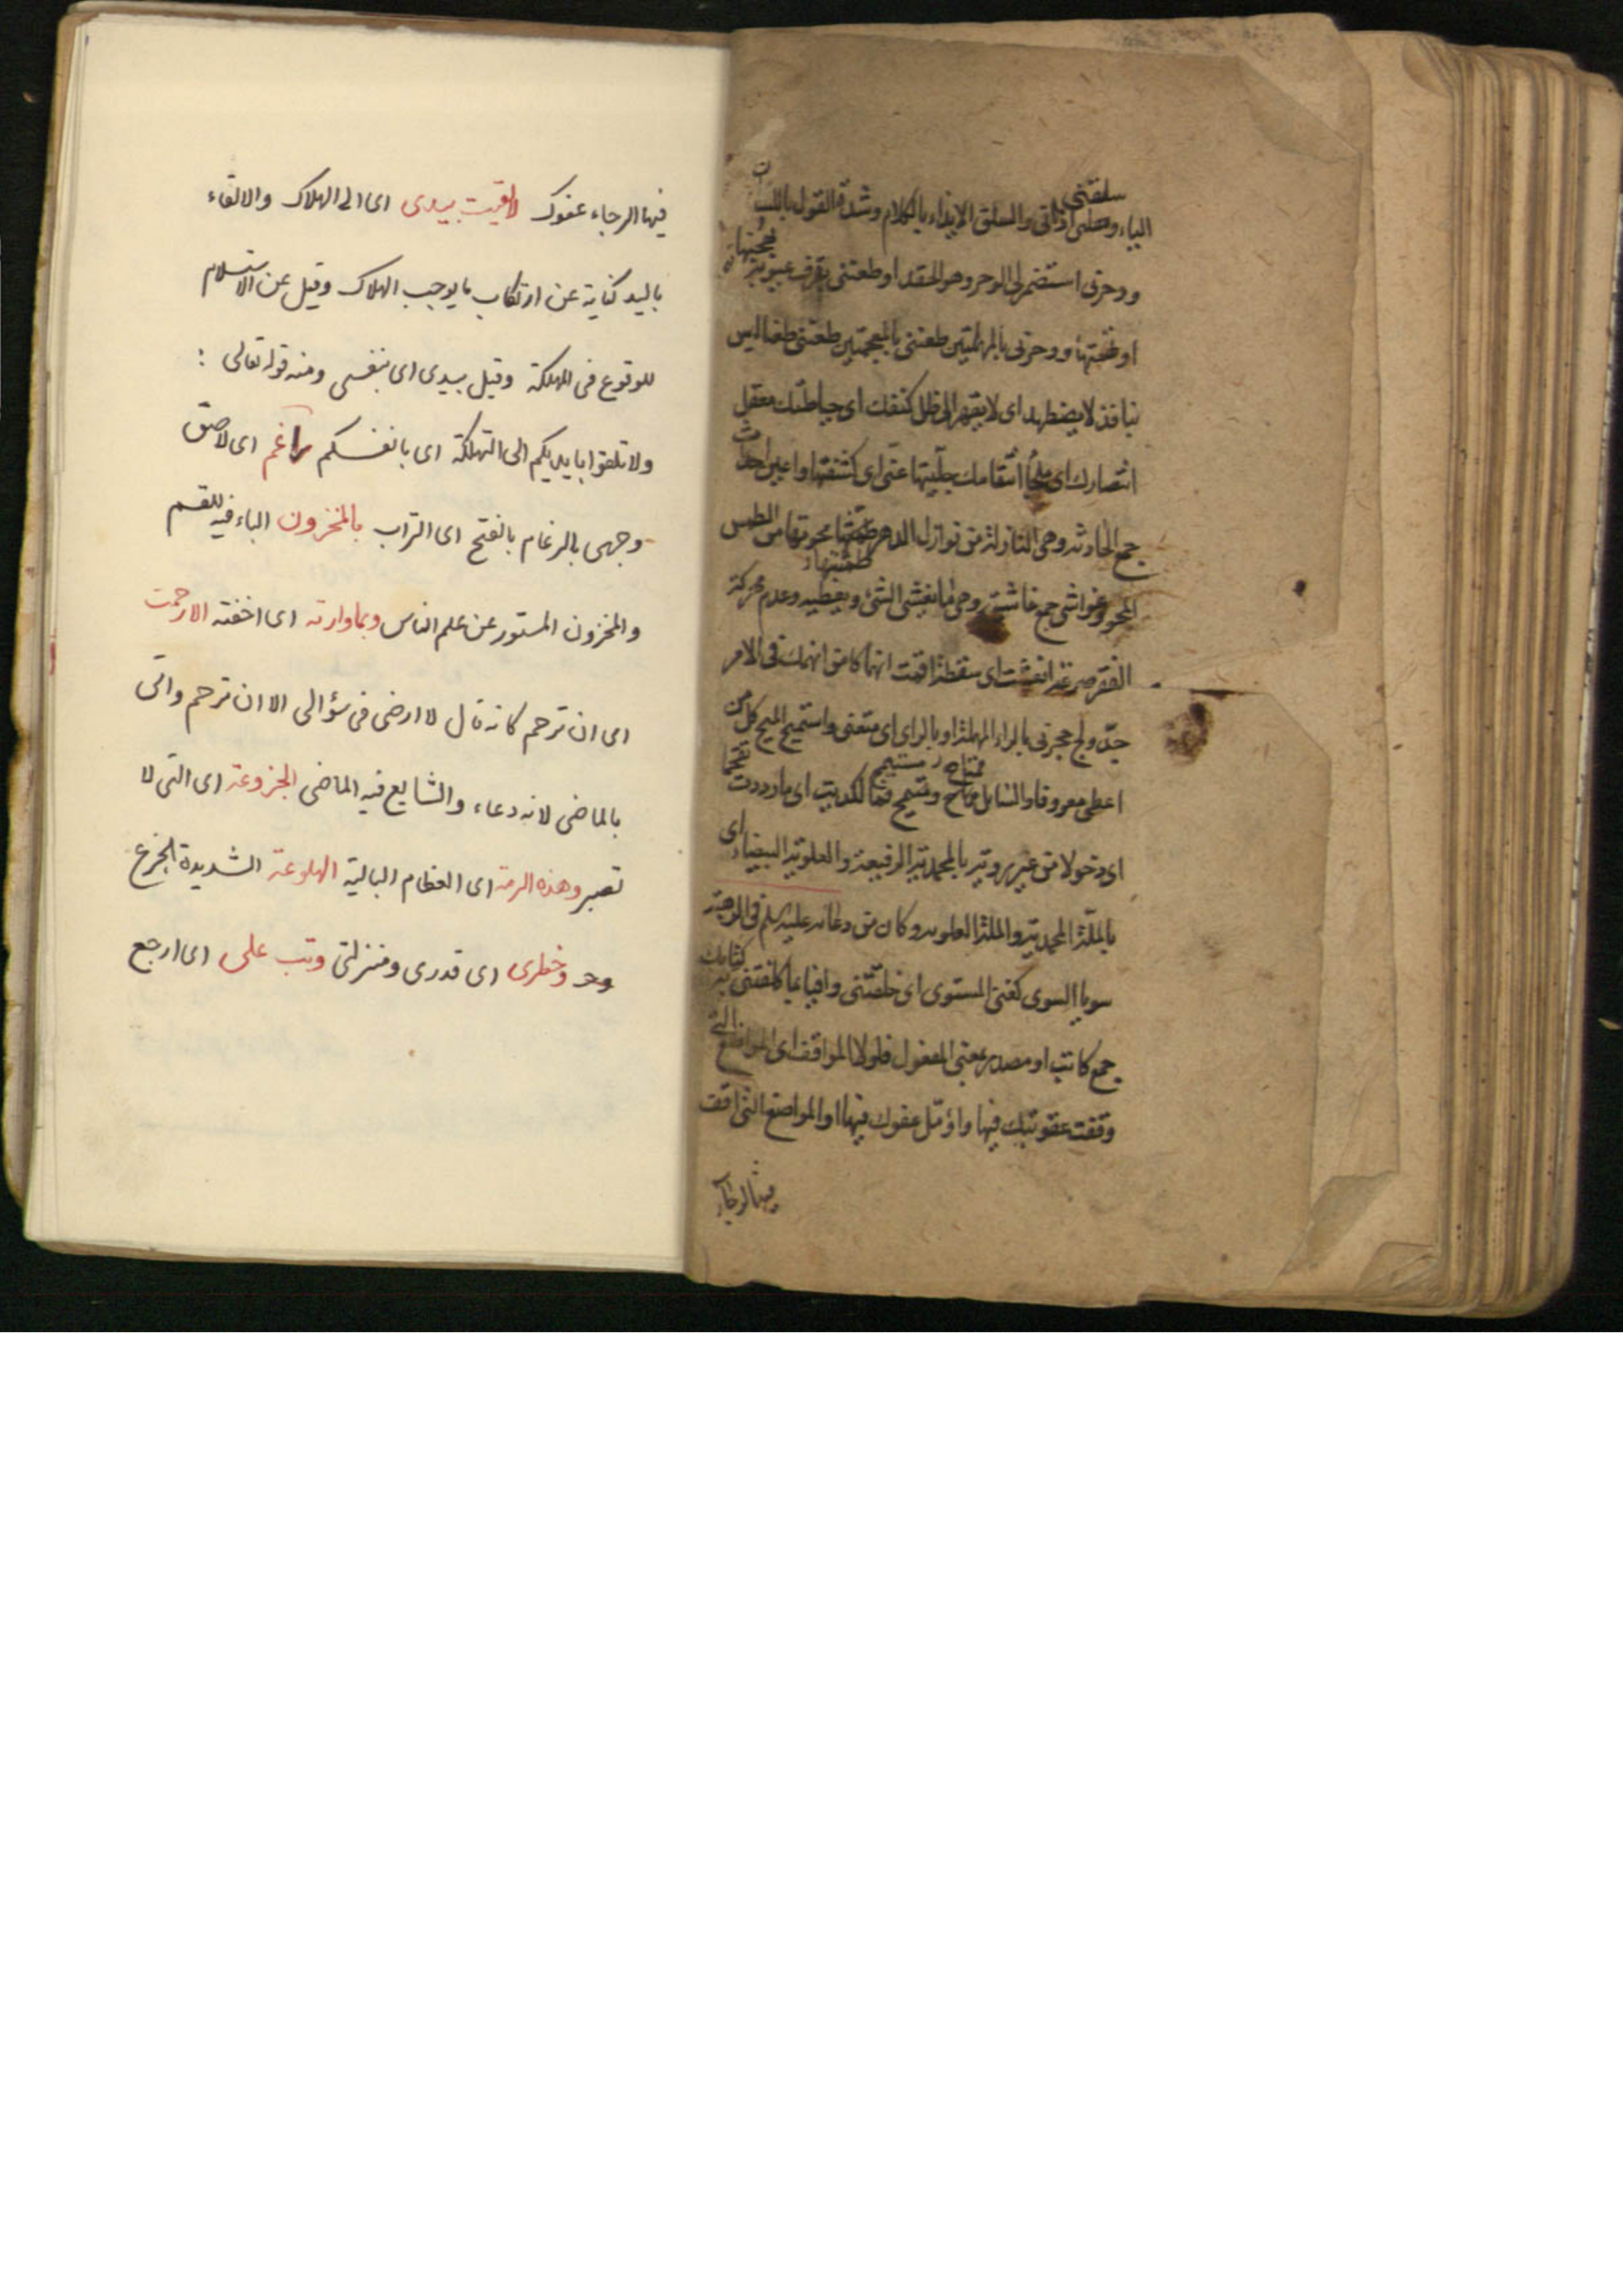 سلقنى
الياء وصلى اذاتى والسلق الايذاء بالكلام وشدة القول باللسان
ووحرنى استضمر لى الوحر وهو الحقد او طعننى بقرف عيوبه
او ووحزنى بالمهملتين طعننى بالمعجمتين طعنى طعنا ليس
بنافذ لا يضطهد اى لا يقهر الى ظل كنفك اى حياطتك معقل
انتصارك اى ملجأ انتقامك جلّيتها عنّى اى كشفتها واعين احداث
جمع الحادثه وهى النازلة من نوازل الدهر طمستها محوتها من الطمس
المحو وغواشى جمع غاشية وهى ما يغشى الشئ ويغطيه وعدم محركة
الفقر صرعة انعشت اى سقطة اقمت انهماكا من انهمك فى الامر
جدّ ولج حجزنى بالراء المهملة او بالزاى اى منعنى واستميح الميح كل من
اعطى معروفا والسايل ممتاح ومستميح اكديت اى ما رددت تقحما
اى دخولا من غير روية بالمحمدية الرفيعة والعلوية البيضاء اى
بالملّة المحمدية والملة العلويه وكان من دعائه عليه سلم فى
سويا السوى كغنى المستوى اى خلقتنى وافيا بما كلفتنى به كتابك
جمع كاتب او مصدر بمعنى المفعول فلولا المواقف اى المواضع التى
وقفت عقوبتك فيها واؤمّل عفوك فيها او المواضع التى اقف
فيها الرجاء
فيها الرجاء عفوك لالقيت بيدى اى الى الهلاك والالقاء
باليد كناية عن ارتكاب ما يوجب الهلاك وقيل عن الاستسلام
للوقوع فى المهلكة وقيل بيدى اى بنفسى ومنه قوله تعالى :
ولا تلقوا بايديكم الى التهلكة اى بانفسكم راغم اى لاصق
وجهى بالرغام بالفتح اى التراب بالمخزون الباء فيه للقسم
والمخزون المستور عن علم الناس وبما وارته اى اخفته الا رحمت
اى ان ترحم كانه قال لا ارضى فى سؤالى الا ان ترحم واتى
بالماضى لانه دعاء والشايع فيه الماضى الجزوعة اى التى لا
تصبر وهذه الرمة اى العظام البالية الهلوعة الشديدة الجزع
وخطرى اى قدرى ومنزلتى وتب على اى ارجع